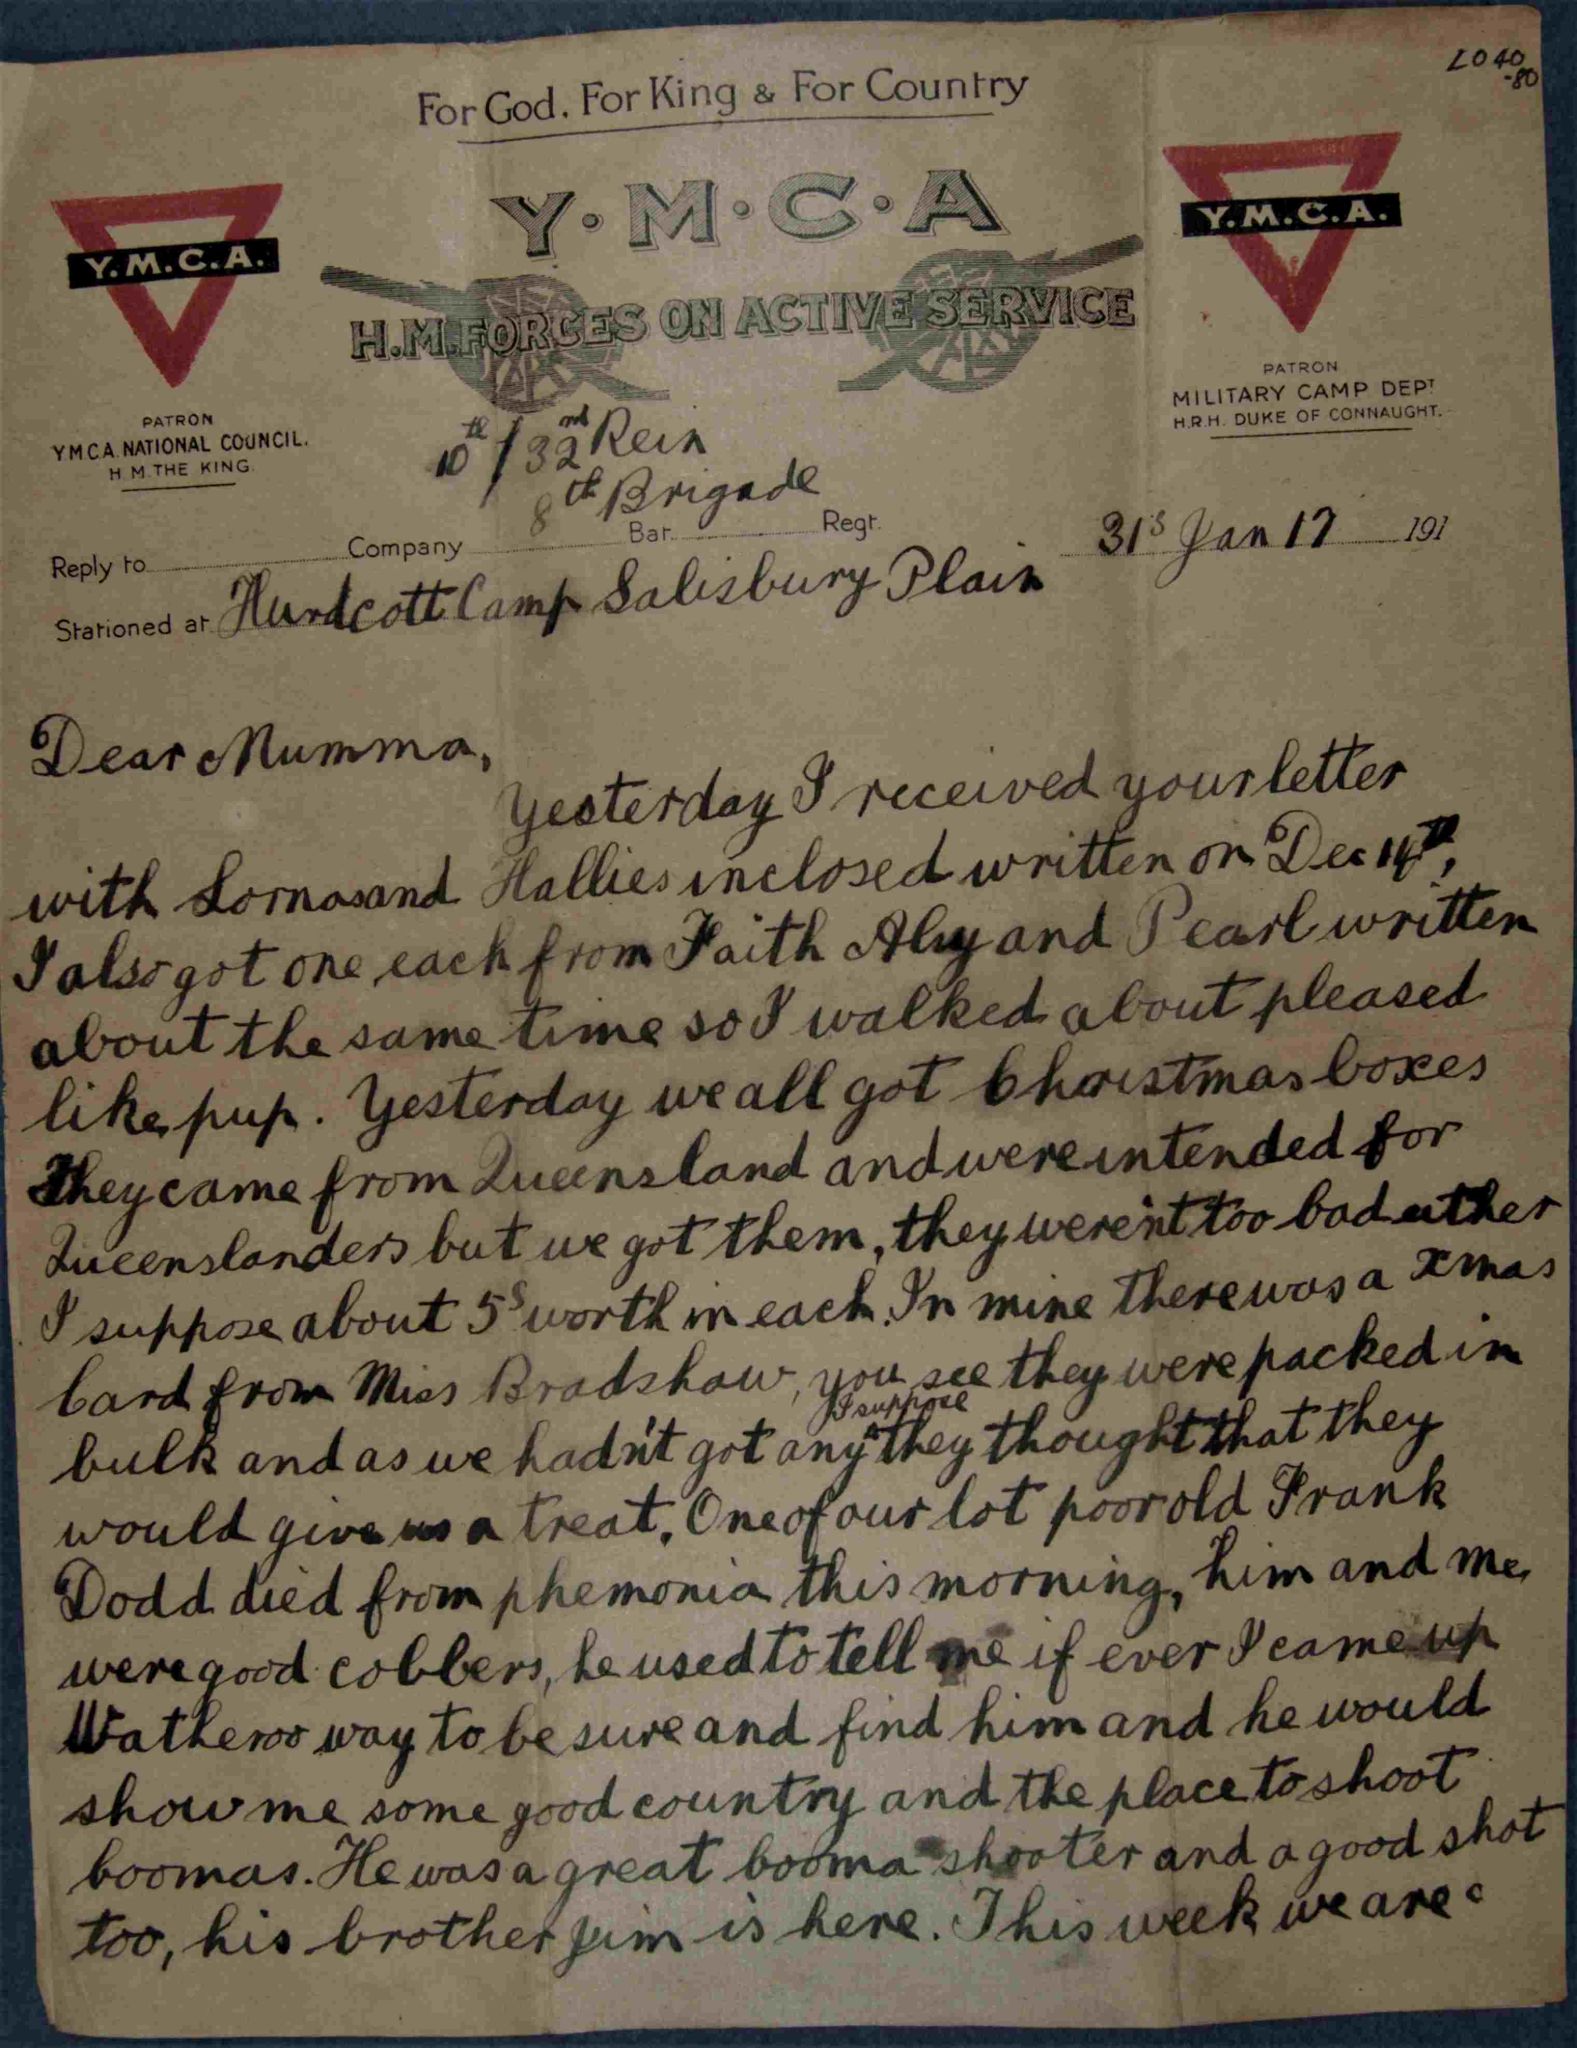 LO 40
-80
For God, For King & For Country
Y·M·C·A
Y.M.C.A.
Y.M.C.A.
H.M. FORCES ON ACTIVE SERVICE
PATRON
Y.M.C.A. NATIONAL COUNCIL.
H.M. THE KING.
PATRON
MILITARY CAMP DEPT
H.R.H. DUKE OF CONNAUGHT.
10th / 32nd Rein
8th Brigade
Reply to Company Bat. Regt. 31s Jan 17 191
Stationed at Hurdcott Camp Salisbury Plain
Dear Mumma,
Yesterday I received your letter
with Lornas and Hallies inclosed written on Dec 14th,
I also got one each from Faith Aly and Pearl written
about the same time so I walked about pleased
like pup. Yesterday we all got Christmas boxes
They came from Queensland and were intended for
Queenslanders but we got them, they weren't too bad uther
I suppose about 5s worth in each. In mine there was a xmas
Card from Miss Bradshaw, you see they were packed in
I suppose
bulk and as we hadn't got any ^ they thought that they
would give us a treat. One of our lot poor old Frank
Dodd died from phemonia this morning, him and me
were good cobbers, he used to tell me if ever I came up
Watheroo way to be sure and find him and he would
show me some good country and the place to shoot
boomas. He was a great booma shooter and a good shot
too, his brother Jim is here. This week we are